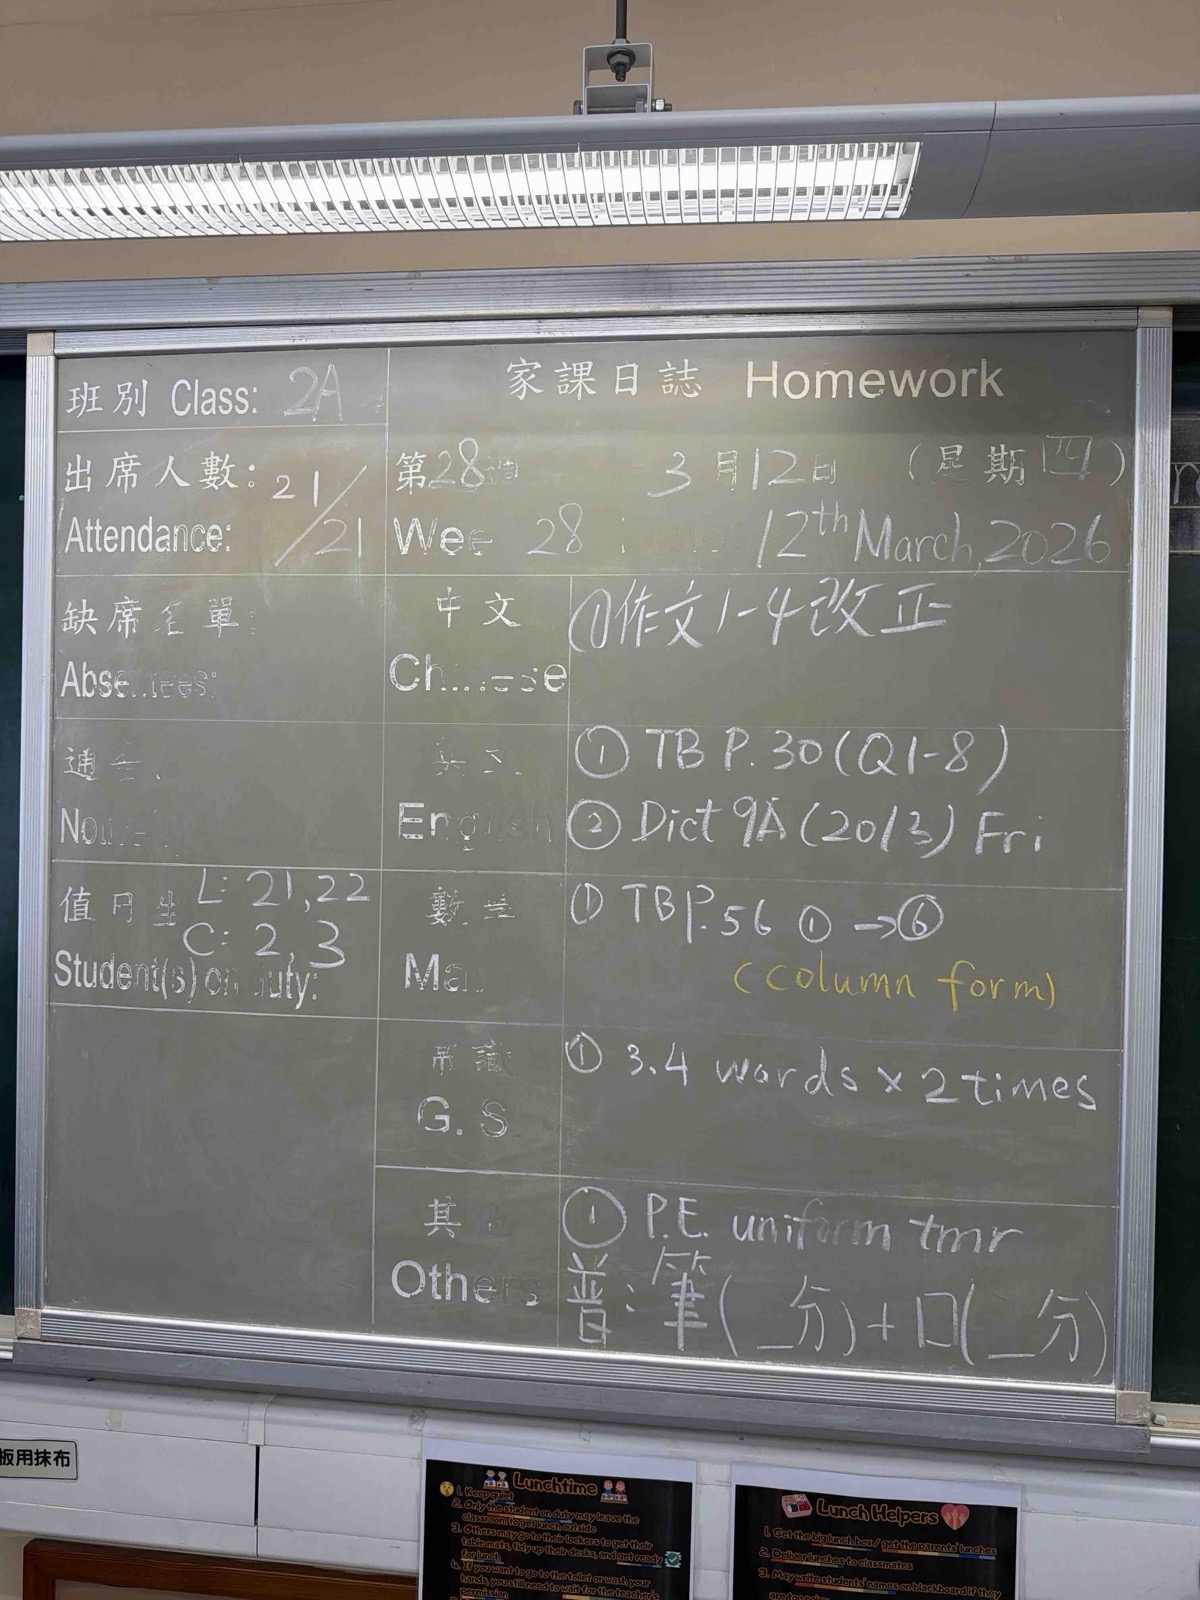 班別 Class: 2A
家課日誌 Homework
出席人數: 21/21
Attendance:
第28週 3月12日 (星期四)
Wee 28 12th March, 2026
缺席名單:
Absentees:
中文
Chinese
① 作文1-4改正
English
① TB P.30 (Q1-8)
② Dict 9A (20/3) Fri
值日生 L: 21,22
C: 2,3
Student(s) on duty:
數學
Ma
① TB P.56 ① → ⑥
(column form)
常識
G. S
① 3.4 words x 2 times
其他
Others
① P.E. uniform tmr
普: 筆(_分)+口(_分)
板用抹布
Lunchtime
1. Keep quiet
2. Only the student on duty may leave the
classroom to get lunch outside
3. Others may go to their lockers to get their
table mats, tidy up their desks, and get ready
for lunch
4. If you want to go to the toilet or wash your
hands, you still need to wait for the teacher's
permission
Lunch Helpers
1. Get the big lunch box / get the parents' lunches
2. Deliver lunches to classmates
3. May write students' names on blackboard if they
are too noisy